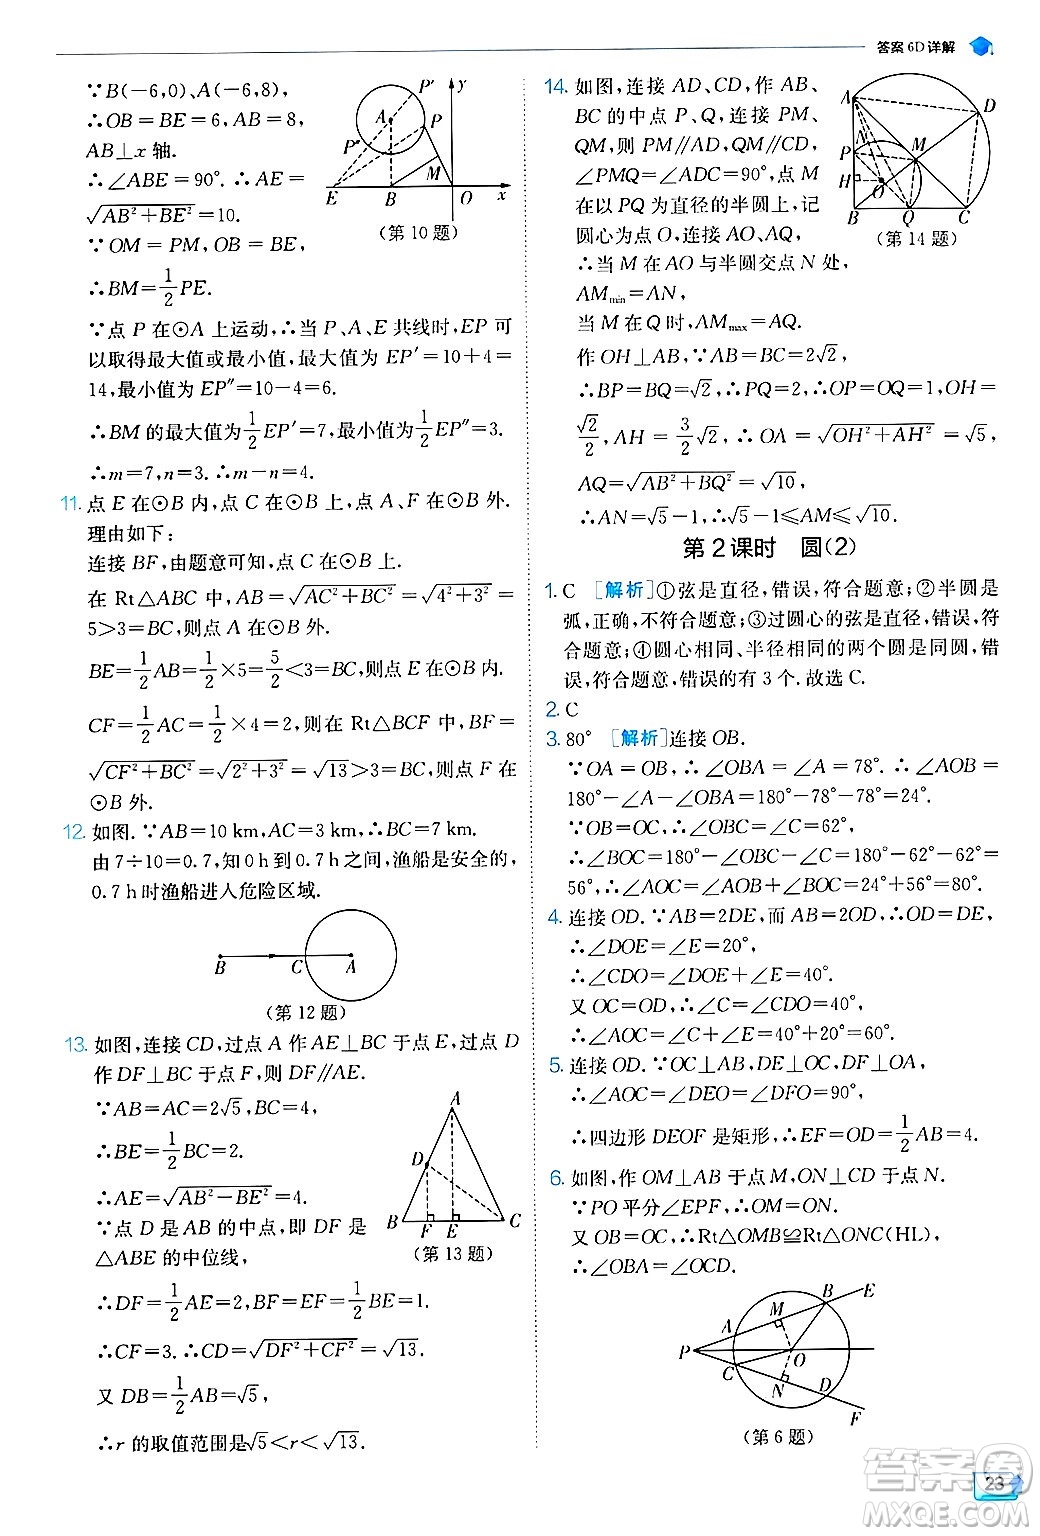 答案 6D 详解
∵B(-6,0)、A(-6,8),
∴OB=BE=6,AB=8,
AB⊥x 轴.
∴∠ABE=90°. ∴AE=
√(AB²+BE²)=10.
∵OM=PM,OB=BE,
∴BM=1/2 PE.
P′ y
A P
P″
M
E B O x
(第 10 题)
∵点 P 在⊙A 上运动,∴当 P、A、E 共线时,EP 可
以取得最大值或最小值,最大值为 EP′=10+4=
14,最小值为 EP″=10-4=6.
∴BM 的最大值为 1/2 EP′=7,最小值为 1/2 EP″=3.
∴m=7,n=3. ∴m-n=4.
11. 点 E 在⊙B 内,点 C 在⊙B 上,点 A、F 在⊙B 外.
理由如下:
连接 BF,由题意可知,点 C 在⊙B 上.
在 Rt△ABC 中,AB=√(AC²+BC²)=√(4²+3²)=
5>3=BC,则点 A 在⊙B 外.
BE=1/2 AB=1/2×5=5/2<3=BC,则点 E 在⊙B 内.
CF=1/2 AC=1/2×4=2,则在 Rt△BCF 中,BF=
√(CF²+BC²)=√(2²+3²)=√13>3=BC,则点 F 在
⊙B 外.
12. 如图. ∵AB=10 km,AC=3 km,∴BC=7 km.
由 7÷10=0.7,知 0 h 到 0.7 h 之间,渔船是安全的,
0.7 h 时渔船进入危险区域.
B C A
(第 12 题)
13. 如图,连接 CD,过点 A 作 AE⊥BC 于点 E,过点 D
作 DF⊥BC 于点 F,则 DF∥AE.
∵AB=AC=2√5,BC=4,
∴BE=1/2 BC=2,
∴AE=√(AB²-BE²)=4.
∵点 D 是 AB 的中点,即 DF 是
△ABE 的中位线,
A
D
B F E C
(第 13 题)
∴DF=1/2 AE=2,BF=EF=1/2 BE=1.
∴CF=3. ∴CD=√(DF²+CF²)=√13.
又 DB=1/2 AB=√5,
∴r 的取值范围是√5<r<√13.
14. 如图,连接 AD、CD,作 AB、
BC 的中点 P、Q,连接 PM、
QM,则 PM∥AD,QM∥CD,
∠PMQ=∠ADC=90°,点 M
在以 PQ 为直径的半圆上,记
圆心为点 O,连接 AO、AQ,
∴当 M 在 AO 与半圆交点 N 处,
AMmin=AN,
当 M 在 Q 时,AMmax=AQ.
A D
P M
H O
B Q C
(第 14 题)
作 OH⊥AB. ∵AB=BC=2√2,
∴BP=BQ=√2,∴PQ=2,∴OP=OQ=1,OH=
√2/2,AH=3/2√2,∴OA=√(OH²+AH²)=√5,
AQ=√(AB²+BQ²)=√10.
∴AN=√5-1,∴√5-1≤AM≤√10.
第 2 课时 圆(2)
1. C [解析]①弦是直径,错误,符合题意;②半圆是
弧,正确,不符合题意;③过圆心的弦是直径,错误,符
合题意;④圆心相同、半径相同的两个圆是同圆,错
误,符合题意,错误的有 3 个. 故选 C.
2. C
3. 80° [解析]连接 OB.
∵OA=OB,∴∠OBA=∠A=78°. ∴∠AOB=
180°-∠A-∠OBA=180°-78°-78°=24°.
∵OB=OC,∴∠OBC=∠C=62°,
∴∠BOC=180°-∠OBC-∠C=180°-62°-62°=
56°,∴∠AOC=∠AOB+∠BOC=24°+56°=80°.
4. 连接 OD. ∵AB=2DE,而 AB=2OD,∴OD=DE,
∴∠DOE=∠E=20°,
∴∠CDO=∠DOE+∠E=40°.
又 OC=OD,∴∠C=∠CDO=40°,
∴∠AOC=∠C+∠E=40°+20°=60°.
5. 连接 OD. ∵OC⊥AB,DE⊥OC,DF⊥OA,
∴∠AOC=∠DEO=∠DFO=90°,
∴四边形 DEOF 是矩形,∴EF=OD=1/2 AB=4.
6. 如图,作 OM⊥AB 于点 M,ON⊥CD 于点 N.
∵PO 平分∠EPF,∴OM=ON.
又 OB=OC,∴Rt△OMB≌Rt△ONC(HL),
∴∠OBA=∠OCD.
M B E
A
P O
C
N D
F
(第 6 题)
23
答案圈
MXQE.COM